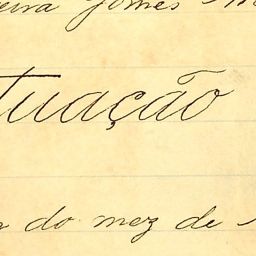 eira Gomes
tuação
do mez de